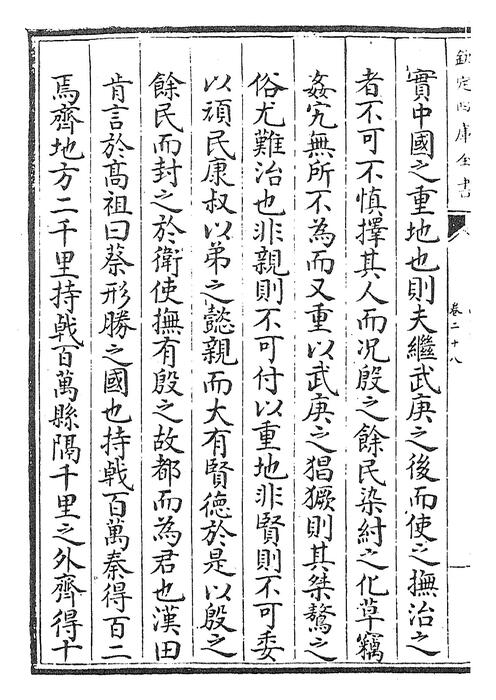 欽定四庫全書
卷二十八
實中國之重地也則夫繼武庚之後而使之撫治之
者不可不慎擇其人而况殷之餘民染紂之化草竊
姦宄無所不為而又重以武庚之猖獗則其桀驁之
俗尤難治也非親則不可付以重地非賢則不可委
以頑民康叔以弟之懿親而大有賢德於是以殷之
餘民而封之於衛使撫有殷之故都而為君也漢田
肯言於髙祖曰蔡形勝之國也持㦸百萬秦得百二
焉齊地方二千里持㦸百萬縣隔千里之外齊得十